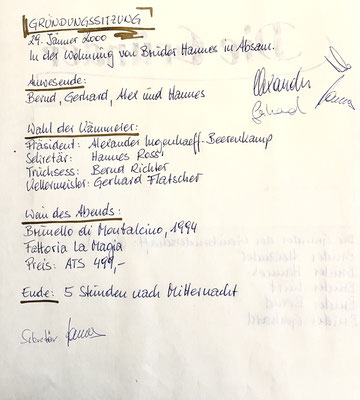 GRÜNDUNGSSITZUNG
29. Jänner 2000
In der Wohnung von Bruder Hannes in Absam.
Anwesende:
Bernd, Gerhard, Alex und Hannes
Alexander
Gerhard
Hannes
Wahl der Kämmerer:
Präsident: Alexander Ingenhaeff-Beerenkamp
Sekretär: Hannes Rossi
Truchsess: Bernd Richter
Kellermeister: Gerhard Flatscher
Wein des Abends:
Brunello di Montalcino, 1994
Fattoria La Magia
Preis: ATS 499,-
Ende: 5 Stunden nach Mitternacht
Sekretär Hannes